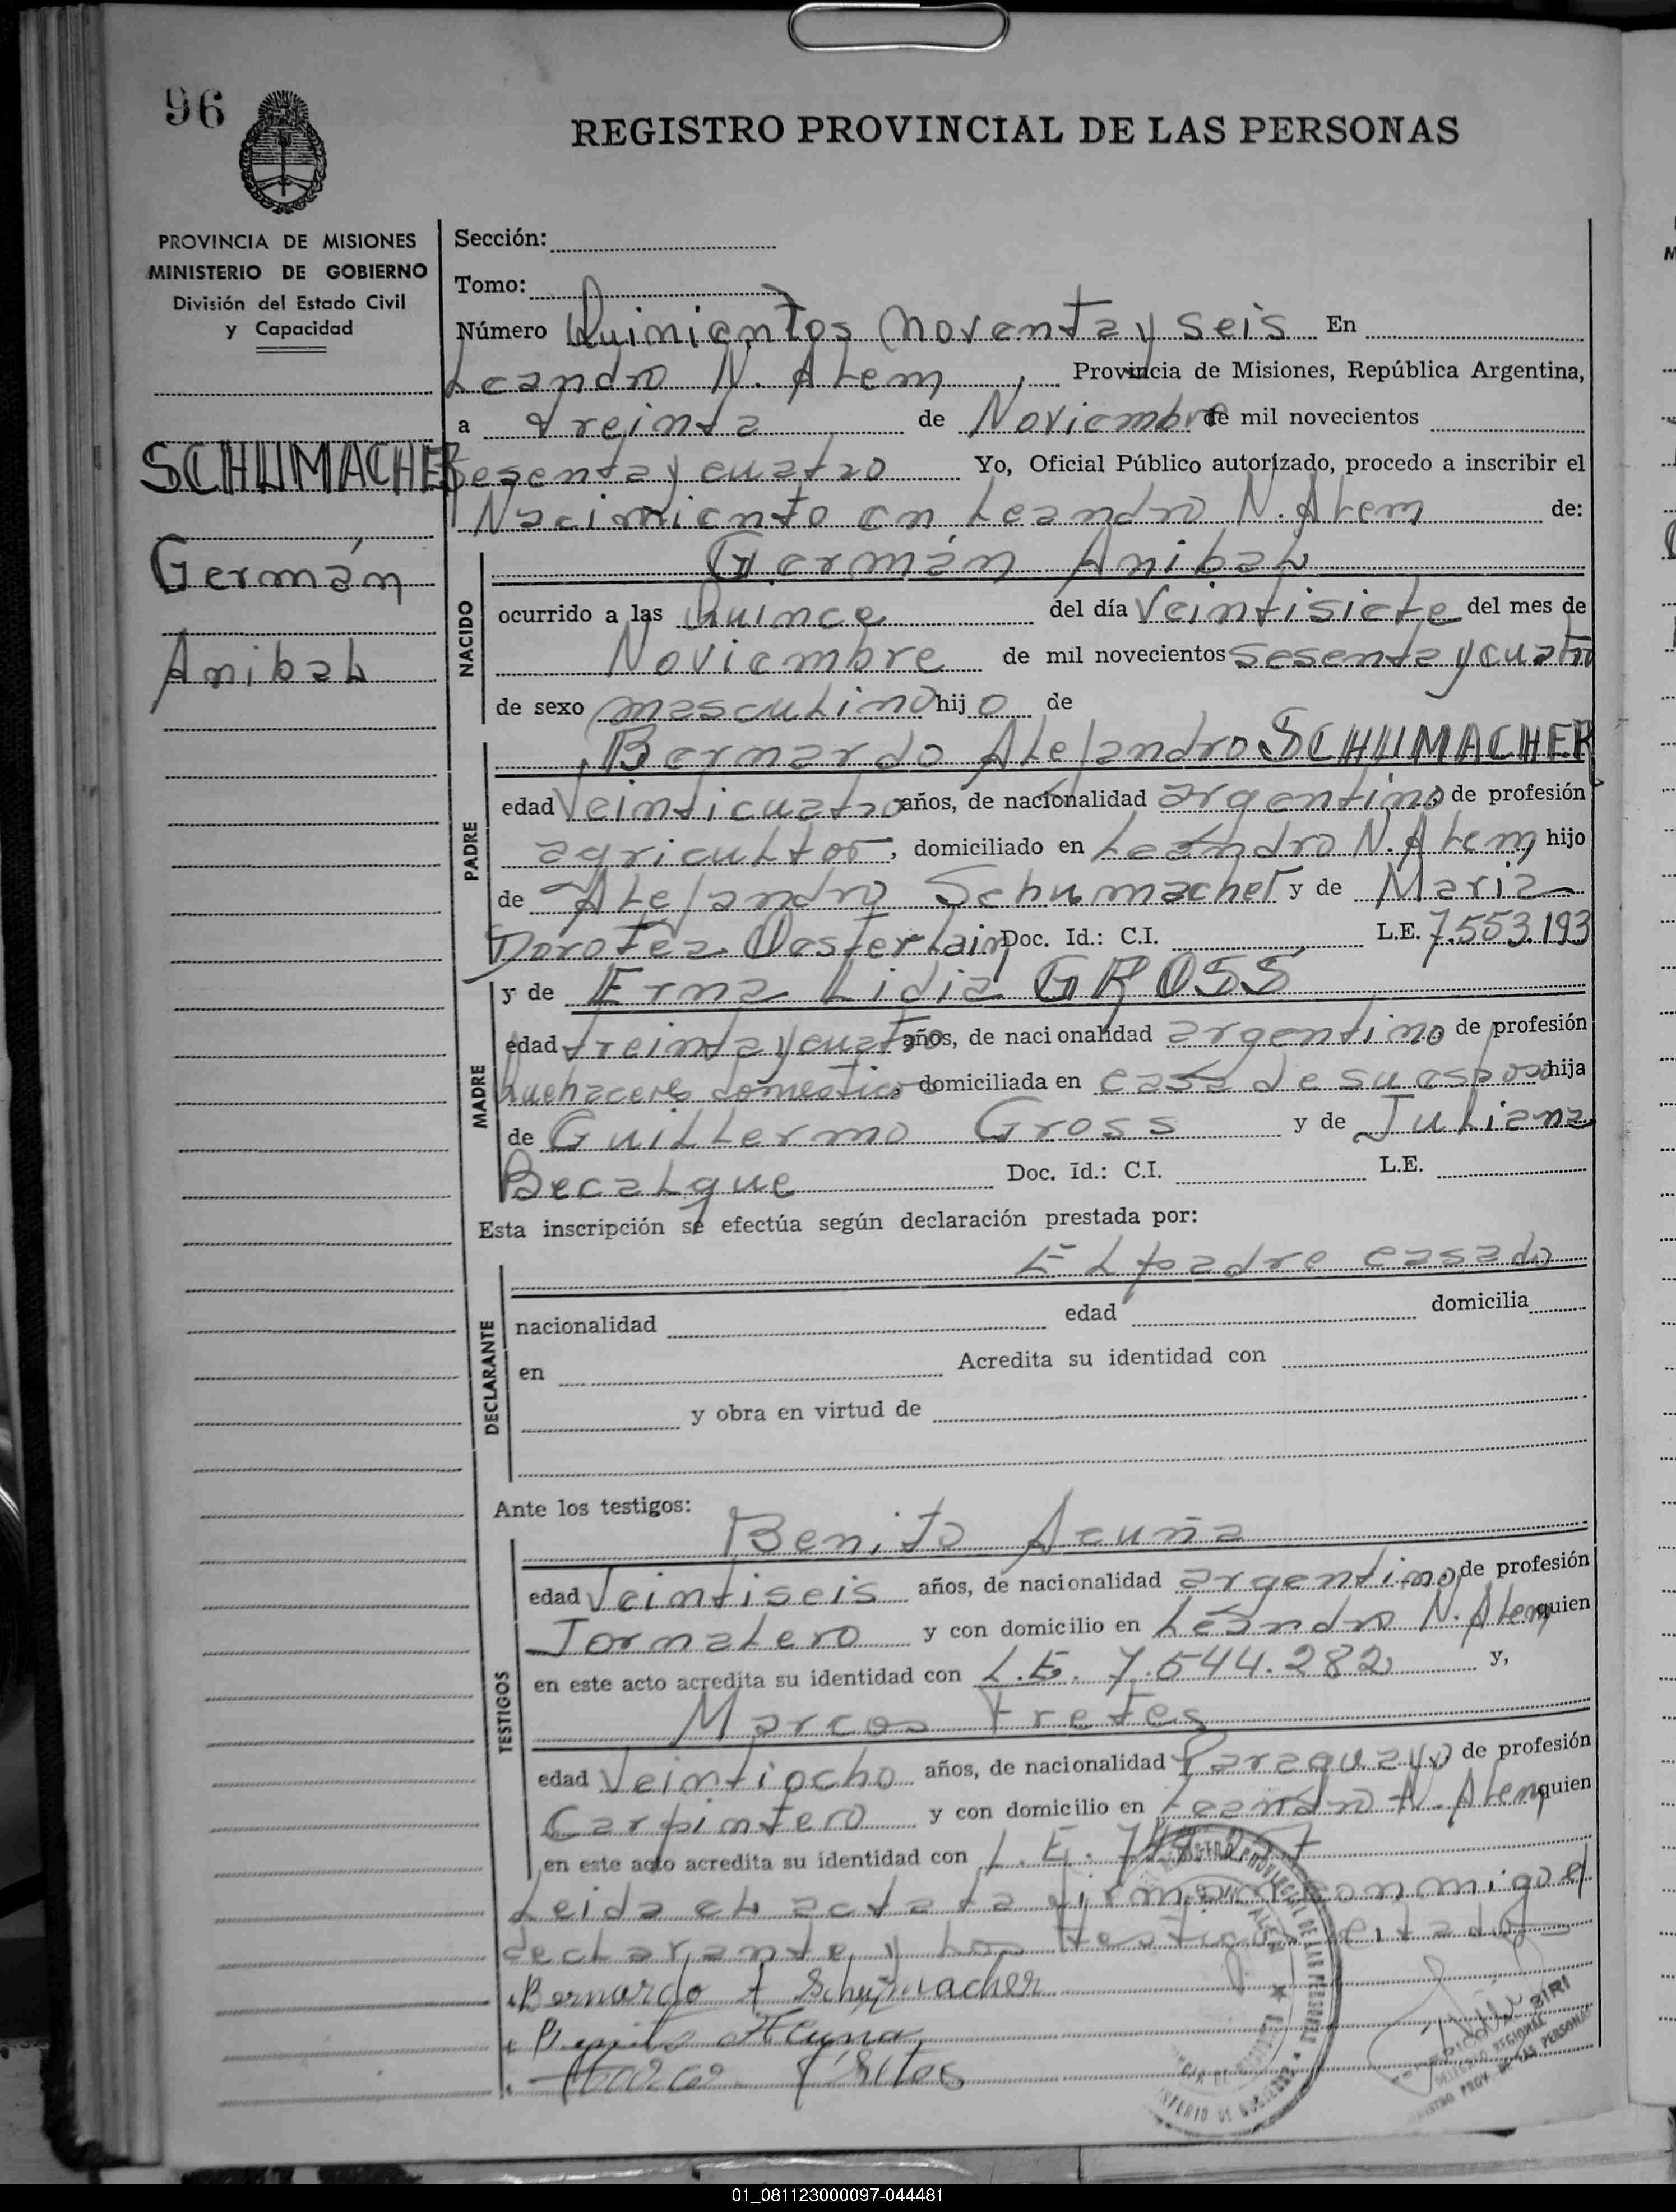 96
REGISTRO PROVINCIAL DE LAS PERSONAS
PROVINCIA DE MISIONES
MINISTERIO DE GOBIERNO
División del Estado Civil
y Capacidad
SCHUMACHER
Germán
Anibal
Sección:
Tomo:
Número Quinientos Noventa y seis En
Leandro N. Alem, Provincia de Misiones, República Argentina,
a treinta de Noviembre de mil novecientos
sesenta y cuatro Yo, Oficial Público autorizado, procedo a inscribir el
Nacimiento en Leandro N. Alem de:
NACIDO
Germán Anibal
ocurrido a las quince del día Veintisiete del mes de
Noviembre de mil novecientos sesenta y cuatro
de sexo masculino hijo de
PADRE
Bernardo Alejandro SCHUMACHER
edad Veinticuatro años, de nacionalidad argentino de profesión
agricultor, domiciliado en Leandro N. Alem hijo
de Alejandro Schumacher y de Maria
Dorotea Oasterlain Doc. Id.: C.I. L.E. 7.553.193
MADRE
y de Erna Lidia GROSS
edad treinta y cuatro años, de nacionalidad argentino de profesión
quehaceres domestico domiciliada en casa de su esposo hija
de Guillermo Gross y de Juliana
Becalque Doc. Id.: C.I. L.E.
Esta inscripción se efectúa según declaración prestada por:
DECLARANTE
El padre casado
nacionalidad edad domicilia
en Acredita su identidad con
y obra en virtud de
Ante los testigos:
TESTIGOS
Benito Acuña
edad Veintiseis años, de nacionalidad argentino de profesión
Jornalero y con domicilio en Leandro N. Alem quien
en este acto acredita su identidad con L.E. 7.544.282 y,
Marcos Fretes
edad Veintiocho años, de nacionalidad Paraguayo de profesión
Carpintero y con domicilio en Leandro N. Alem quien
en este acto acredita su identidad con L.E.
Leida el acta la firman conmigo el
declarante y los testigos citados
Bernardo A Schumacher
Benito Acuña
Marcos Fretes
REGISTRO PROVINCIAL DE LAS PERSONAS
DELEGADO REGIONAL
REGISTRO PROV. DE LAS PERSONAS
01_081123000097-044481